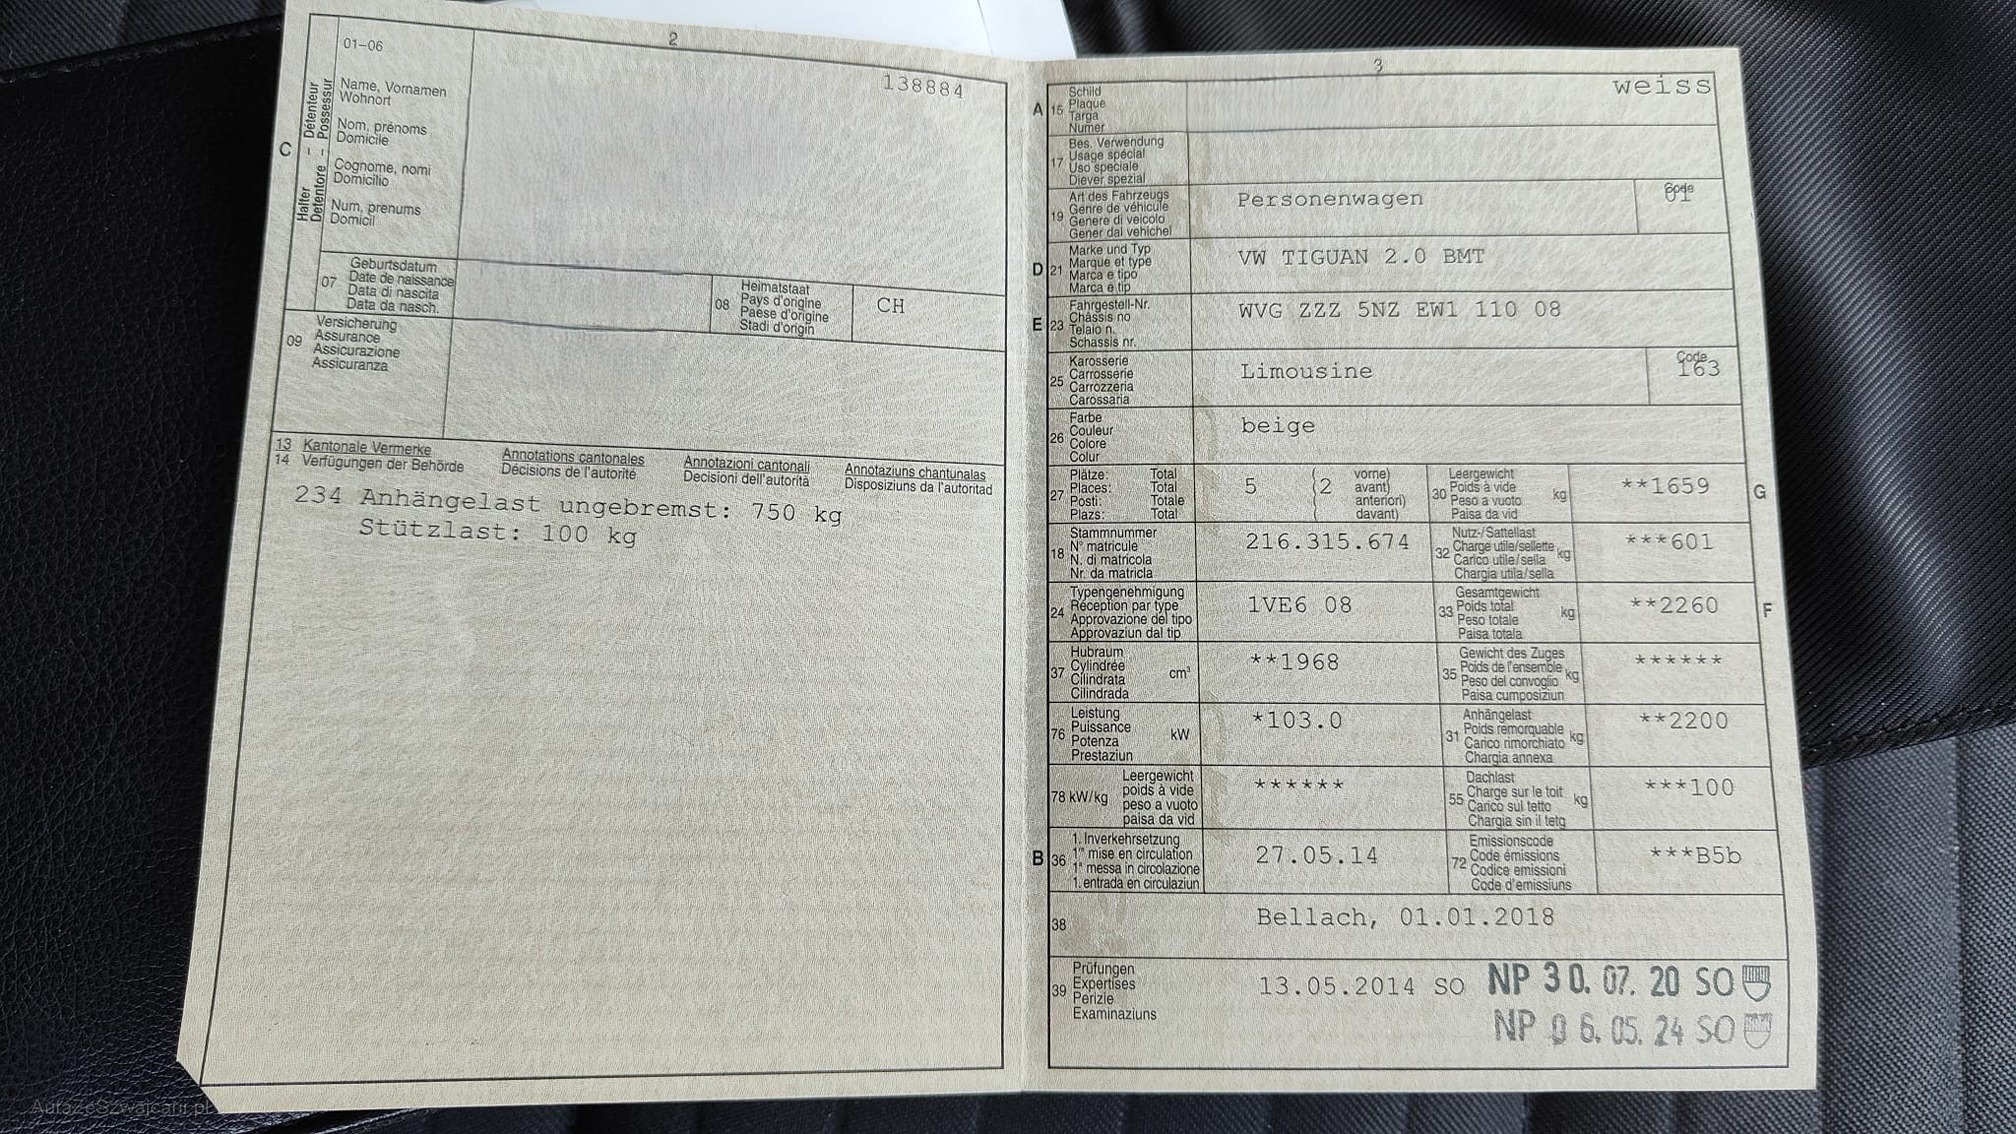 2
01–06
138884
C
Halter – Détenteur
Detentore – Possessur
Name, Vornamen
Wohnort
Nom, prénoms
Domicile
Cognome, nomi
Domicilio
Num, prenums
Domicil
07
Geburtsdatum
Date de naissance
Data di nascita
Data da nasch.
08
Heimatstaat
Pays d'origine
Paese d'origine
Stadi d'origin
CH
09
Versicherung
Assurance
Assicurazione
Assicuranza
13 Kantonale Vermerke Annotations cantonales Annotazioni cantonali Annotaziuns chantunalas
14 Verfügungen der Behörde Décisions de l'autorité Decisioni dell'autorità Disposiziuns da l'autoritad
234 Anhängelast ungebremst: 750 kg
Stützlast: 100 kg
3
A 15
Schild
Plaque
Targa
Numer
weiss
17
Bes. Verwendung
Usage spécial
Uso speciale
Diever spezial
19
Art des Fahrzeugs
Genre de véhicule
Genere di veicolo
Gener dal vehichel
Personenwagen
Code
01
D 21
Marke und Typ
Marque et type
Marca e tipo
Marca e tip
VW TIGUAN 2.0 BMT
E 23
Fahrgestell-Nr.
Châssis no
Telaio n.
Schassis nr.
WVG ZZZ 5NZ EW1 110 08
25
Karosserie
Carrosserie
Carrozzeria
Carossaria
Limousine
Code
163
26
Farbe
Couleur
Colore
Colur
beige
27
Plätze: Total
Places: Total
Posti: Totale
Plazs: Total
5 (2
vorne)
avant)
anteriori)
davant)
30
Leergewicht
Poids à vide
Peso a vuoto
Paisa da vid
kg
**1659
G
18
Stammnummer
N° matricule
N. di matricola
Nr. da matricla
216.315.674
32
Nutz-/Sattellast
Charge utile/sellette
Carico utile/sella
Chargia utila/sella
kg
***601
24
Typengenehmigung
Réception par type
Approvazione del tipo
Approvaziun dal tip
1VE6 08
33
Gesamtgewicht
Poids total
Peso totale
Paisa totala
kg
**2260
F
37
Hubraum
Cylindrée
Cilindrata
Cilindrada
cm³
**1968
35
Gewicht des Zuges
Poids de l'ensemble
Peso del convoglio
Paisa cumposiziun
kg
******
76
Leistung
Puissance
Potenza
Prestaziun
kW
*103.0
31
Anhängelast
Poids remorquable
Carico rimorchiato
Chargia annexa
kg
**2200
78 kW/kg
Leergewicht
poids à vide
peso a vuoto
paisa da vid
******
55
Dachlast
Charge sur le toit
Carico sul tetto
Chargia sin il tetg
kg
***100
B 36
1. Inverkehrsetzung
1re mise en circulation
1a messa in circolazione
1. entrada en circulaziun
27.05.14
72
Emissionscode
Code émissions
Codice emissioni
Code d'emissiuns
***B5b
38
Bellach, 01.01.2018
39
Prüfungen
Expertises
Perizie
Examinaziuns
13.05.2014 SO NP 30.07.20 SO
NP 06.05.24 SO
AutazeSzwajcarii.pl